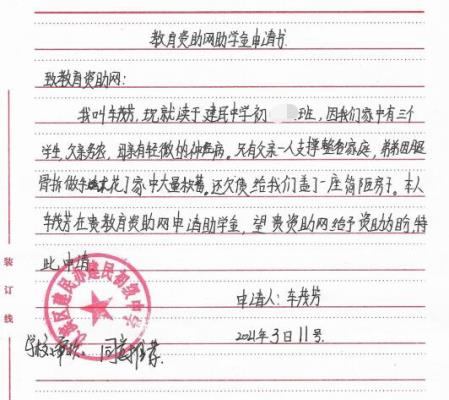 教育资助网助学金申请书
致教育资助网：
我叫车茂芳，现就读于建民中学初 班，因我们家中有三个
学生，父亲务农，母亲有轻微的神经病。只有父亲一人支撑整个家庭，弟弟因腿
骨折做手术花了家中大量积蓄。还欠债给我们盖了一座简陋房子。本人
车茂芳在贵教育资助网申请助学金，望贵资助网给予资助为盼，特
此，申请
申请人：车茂芳
2021年3日11号
学校 ：同意推荐
区建民办建民初级中学
装订线